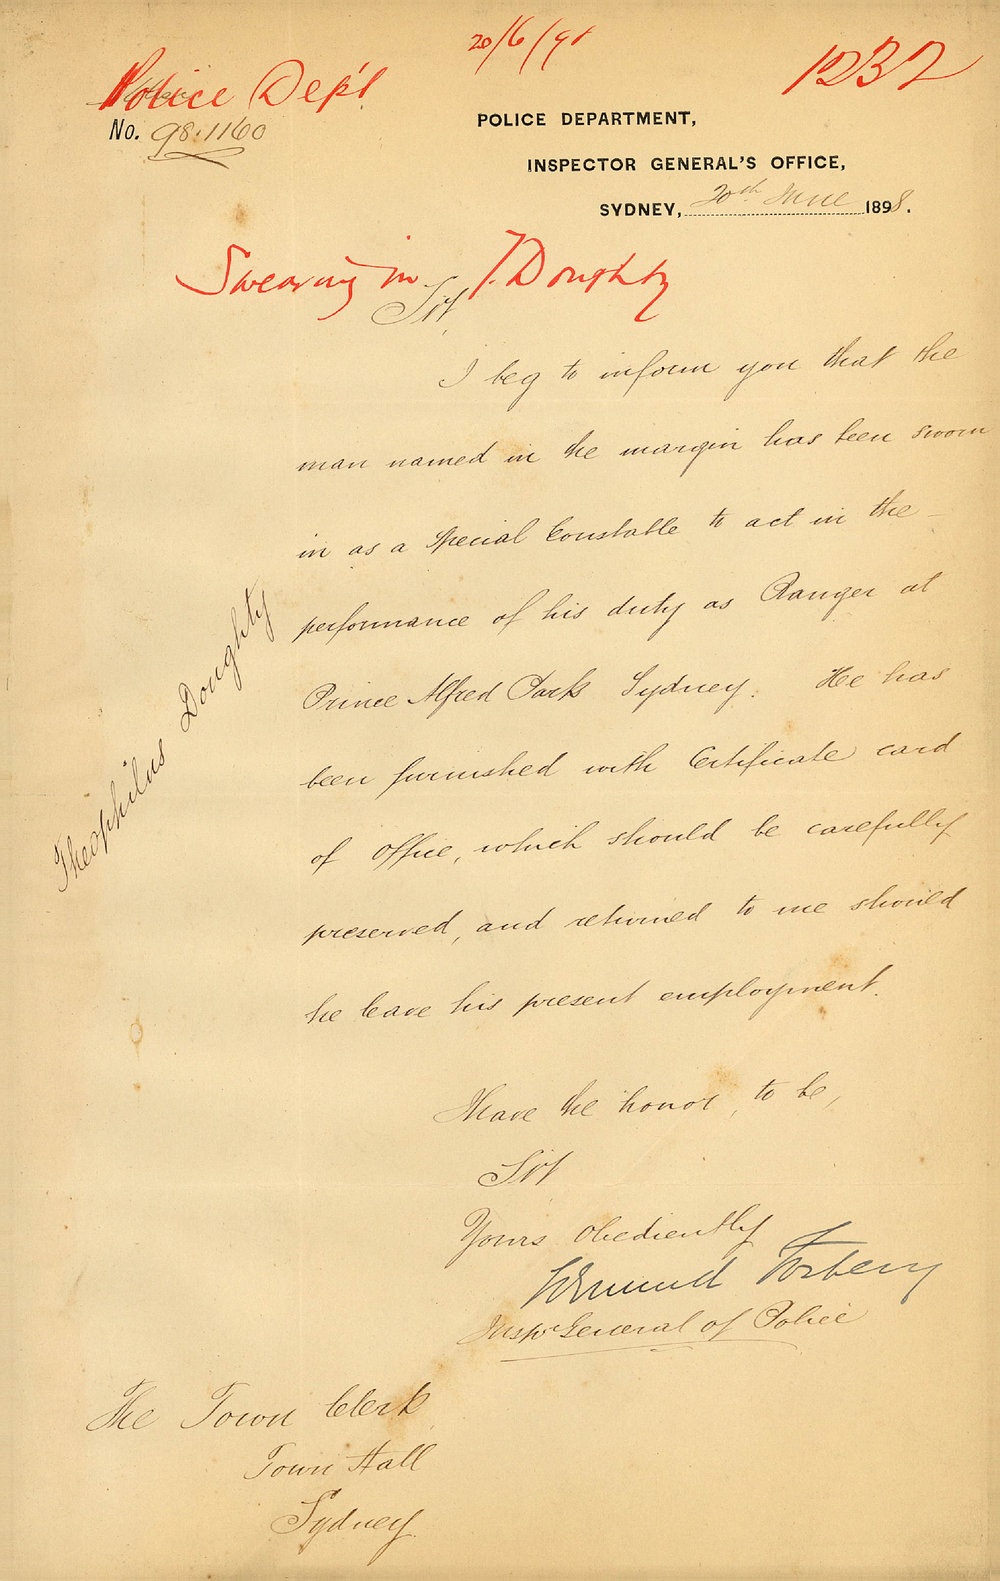 20/6/98
1232
Police Dep't
No. 98.1160
POLICE DEPARTMENT,
INSPECTOR GENERAL'S OFFICE,
SYDNEY, 20th June 1898.
Swearing in T. Doughty
Sir,
I beg to inform you that the
man named in the margin has been sworn
in as a Special Constable to act in the
performance of his duty as Ranger at
Prince Alfred Park Sydney. He has
been furnished with Certificate card
of Office, which should be carefully
preserved, and returned to me should
he leave his present employment.
Theophilus Doughty
Have the honor, to be,
Sir
Yours obediently
Edmund Fosbery
Inspr General of Police
The Town Clerk
Town Hall
Sydney.